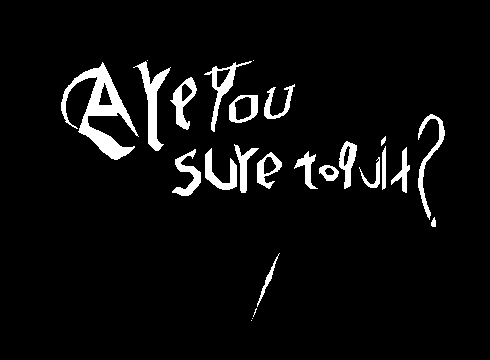 Are You
sure to quit?
/